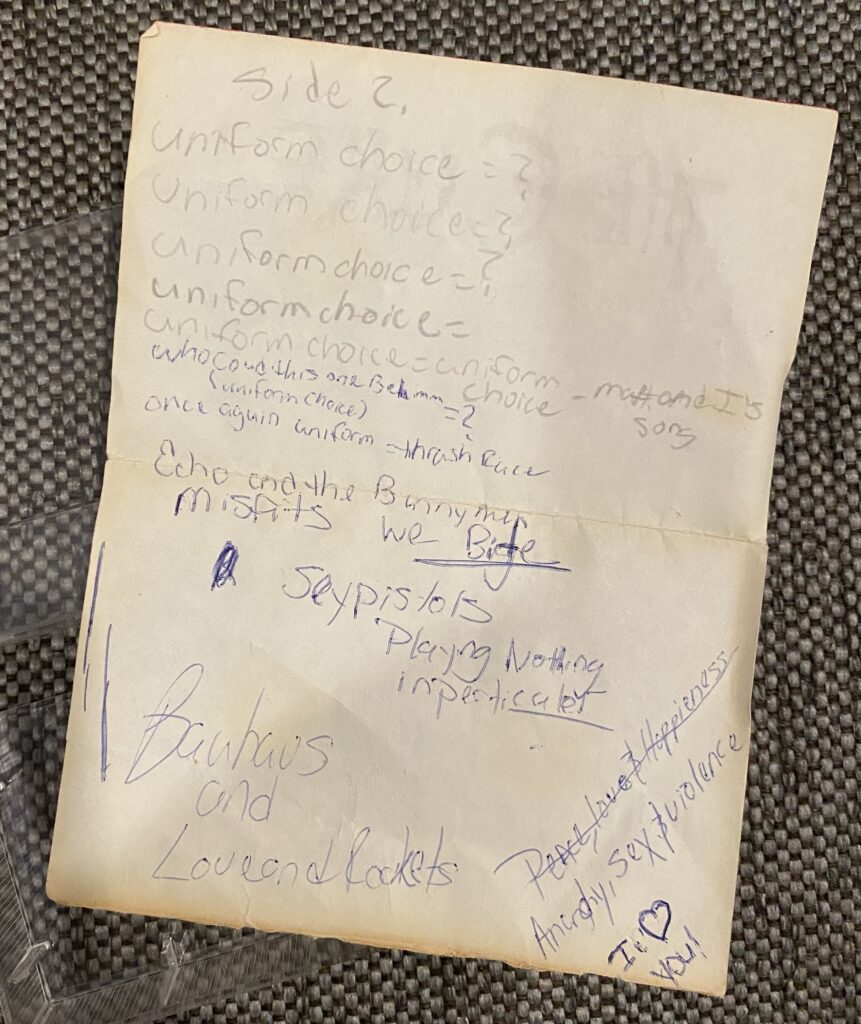 Side 2.
uniform choice = ?
uniform choice = ?
uniform choice = ?
uniform choice =
uniform choice = uniform choice - matt and I's song
who coud this one Be hmm = ?
(uniform choice)
once again uniform = thrash
Echo and the Bunnymen
misfits we Bite
Sexpistols
Playing Nothing
inperticuler
Bauhaus
and
Love and Rockets
Peace, love & Happieness
Anarchy, sex & violence
I ♡
you!